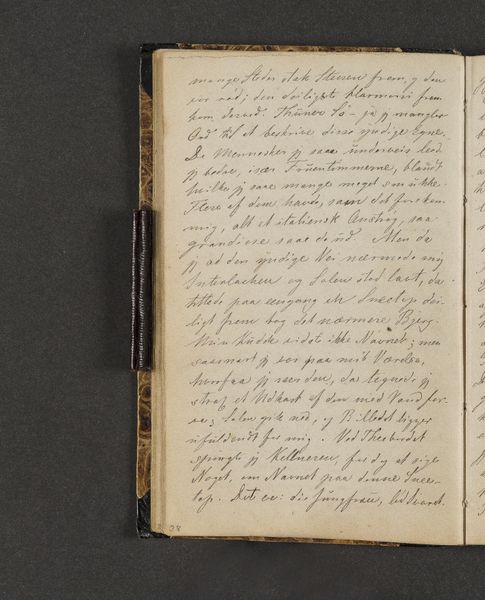 mange Steder stak Stenen frem, og den
var rød; den deiligste Harmoni frem
kom derved. Thuner Sö - ja jeg mangler
Ord til at beskrive disse yndige Egne.
De Mennesker jeg saae underveis leed
jeg bedre, især Fruentimmerne, blandt
hvilke jeg saae mange meget smukke.
Flere af dem havde, som det forekom
mig, alt et italiensk Anstrøg, saa
grandiose saae de ud. Men da
jeg ad den yndige Vei nærmede mig
Interlacken og Solen stod lavt, da
tittede paa eengang en Sneetop dei-
ligt frem bag det nærmere Bjerg.
Min Kudsk vidste ikke Navnet; men
saasnart jeg var paa mit Værelse,
hvorfra jeg saae den, da tegnede jeg
strax et Udkast af den med Vandfar-
ver; Solen gik ned, og Billedet ligger
ufuldendt for mig. Ved Theebordet
spurgte jeg Kellneren, for dog at sige
Noget, om Navnet paa denne Snee-
top. Det er: die Jungfrau, lød Svaret.
28